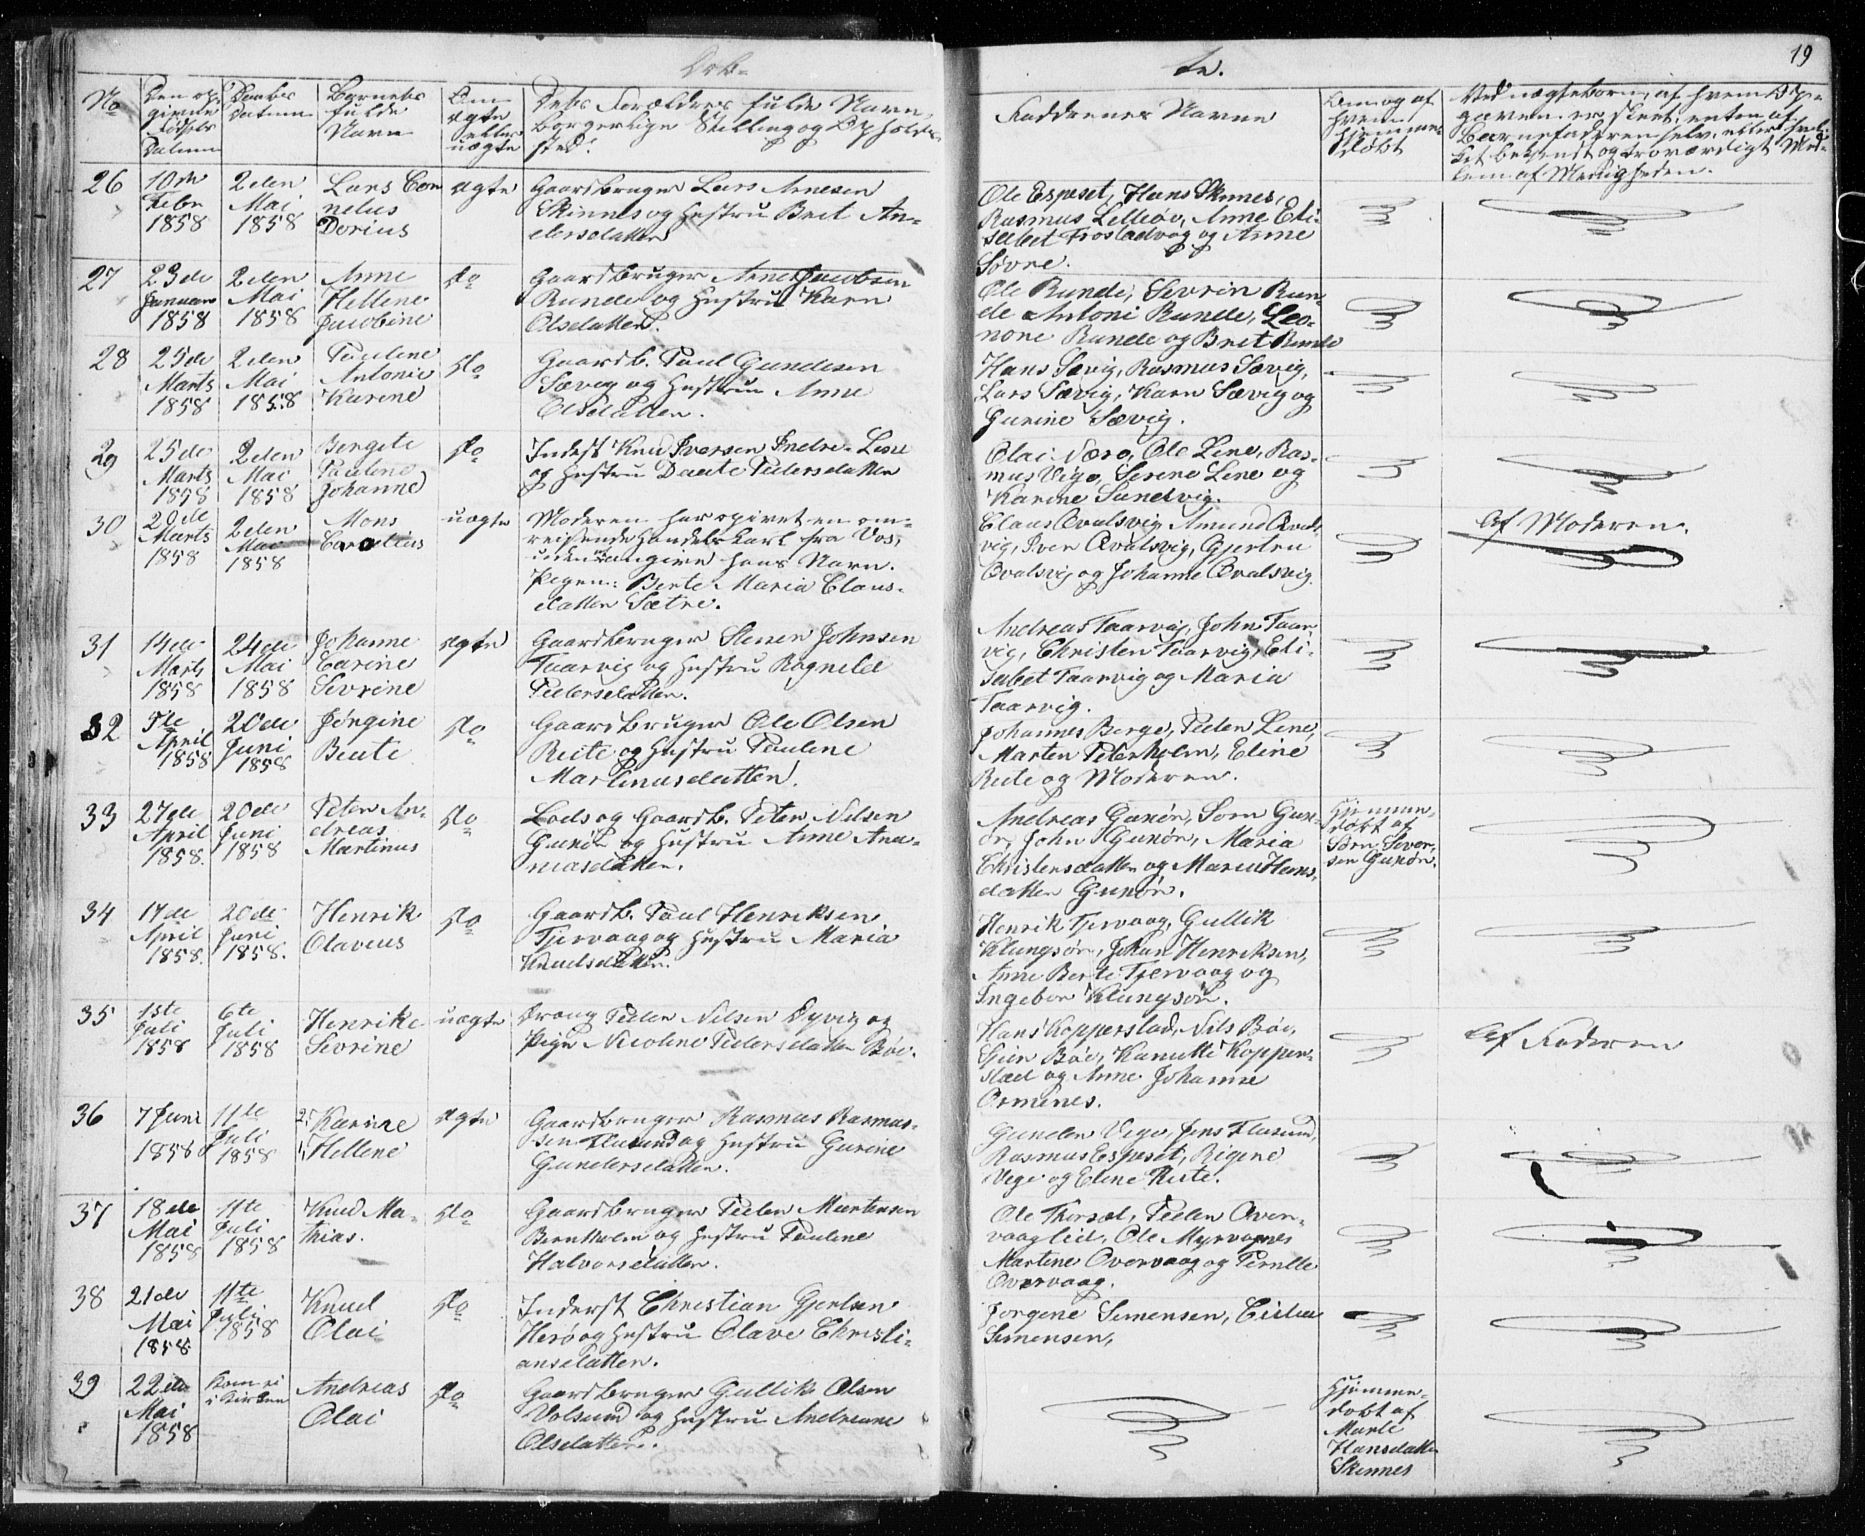 Døb-
te.
19
No
Den op-
givne
Fødsels
Datum
Daabs
Datum
Barnets
fulde
Navn
Om
ægte
eller
uægte
Dets Forældres fulde Navn,
borgerlige Stilling og Opholds-
sted.
Faddernes Navne
Om og af
hvem
hjemme-
døbt
Ved uægte børn, af hvem Op-
gaven er skeet; enten af
Barnefaderen selv, eller hvil-
ket bekjendt og troværdigt Med-
lem af Menigheden.
26
10de
Febr
1858
2den
Mai
1858
Lars Cor
nelius
Dorius
ægte
Gaardbruger Lars Arnesen
Skinnes og Hustru Brit An-
dersdatter
Ole Espeset, Hans Skinnes,
Rasmus Lilleøv, Anne Eli-
sabet Frostadvog og Anne
Søvre.
27
23de
Januar
1858
2den
Mai
1858
Anne
Hellene
Jacobine
do
Gaardbruger Arne Jacobsen
Runde og Hustru Karn
Olsdatter.
Ole Runde, Sevrin Run-
de Antoni Runde, Leo-
none Runde og Brit Runde
28
25de
Marts
1858
2den
Mai
1858
Pauline
Antonie
Karine
do
Gaardb. Paul Gundersen
Sævig og Hustru Anne
Olsdatter.
Hans Sævig, Rasmus Sævig,
Lars Sævig, Karn Sævig og
Gurine Sævig.
29
25de
Marts
1858
2den
Mai
1858
Bergite
Pauline
Johanne
do
Inderst Knud Iversen Indre-
og Hustru Daate Pedersdatter
Olai Nærø, Ole Line, Ras-
mus Vige, Serene Line og
Karine Sandvig.
30
20de
Marts
1858
2den
Mai
1858
Mons
Cornelius
uægte
Moderen har opivet en om-
reisende Handelskarl fra Vos,
uden at angive hans Navn.
Pigen: Berte Maria Claus-
datter Sætre.
Claus Qvalsvig Amund Qvals
vig, Iver Qvalsvig, Gjertru
Qvalsvig og Johanne Qvalsvig.
Af Moderen.
31
14de
Marts
1858
24de
Mai
1858
Johanne
Carine
Sevrine
ægte
Gaardbruger Stener Johnsen
Taarvig og Hustru Ragnild
Pedersdatter.
Andreas Taarvig, John Taar-
vig, Christen Taarvig, Eli-
sabet Taarvig og Maria
Taarvig.
32
5te
April
1858
20de
Juni
1858
Jørgine
Beate
do
Gaardbruger Ole Olsen
Reite og Hustru Pauline
Martinusdatter.
Johannes Berge, Peder Line,
Marten Peterholm, Eline
Reite og Moderen.
33
27de
April
1858.
20de
Juni
1858
Peter An-
dreas
Martinus
do
Lods og Gaardb. Peter Nilsen
Gursø og Hustru Anne Ana-
niasdatter.
Andreas Gurøn, Søren Gur-
øn, John Gurøn, Maria
Christensdatter og Maren Hans-
datter Gurøn.
Hjemme-
døbt af
Sørn Sever-
sen Gurøn.
34
17de
April
1858.
20de
Juni
1858.
Henrik
Olavius
do
Gaardb. Paul Henriksen
Tjervaag og Hustru Maria
Knudsdatter.
Henrik Tjervaag, Gullik
Klungsør, Johan Henriksen,
Anne Berte Tjervaag og
Ingebor Klungsør.
35
1ste
Juli
1858
6te
Juli
1858
Henrike
Sevrine
uægte
Dreng Peder Nilsen Dyvig og
Pige Nicoline Pedersdatter Bøe.
Hans Kopperstad, Nils Bøe,
Bøe, Hanutte Kopper-
stad og Anne Johanne
Ormenes.
Af Faderen
36
7 Juni
1858
11te
Juli
1858
2, Karine
1, Hellene
ægte
Gaardbruger Rasmus Rasmus-
sen Flusund og Hustru Gurine
Gundersdatter.
Gunder Vige, Jens Flusund,
Rasmus Espeset, Rigine
Vege og Eline Reite.
37
18de
Mai
1858
11te
Juli
1858
Knud Ma-
thias.
do
Gaardbruger Peder Martensen
Bernholm og Hustru Pauline
Halvorsdatter.
Ole Thorsæt, Peder Over-
vaaglid, Ole Myrvognes
Martine Overvaag og Pernille
Overvaag.
38
21de
Mai
1858
11te
Juli
1858
Knud
Olai
do
Inderst Christian Gjertsen
Herø og Hustru Olave Christi-
ansdatter.
Jørgene Simensen,
Simensen,
39
22de
Mai
1858
Kom ei
i Kirken
Andreas
Olai
do
Gaardbruger Gullik Olsen
Volsund og Hustru Andreane
Olsdatter.
Hjemme-
døbt af
Marte
Hansdatter
Skinnes